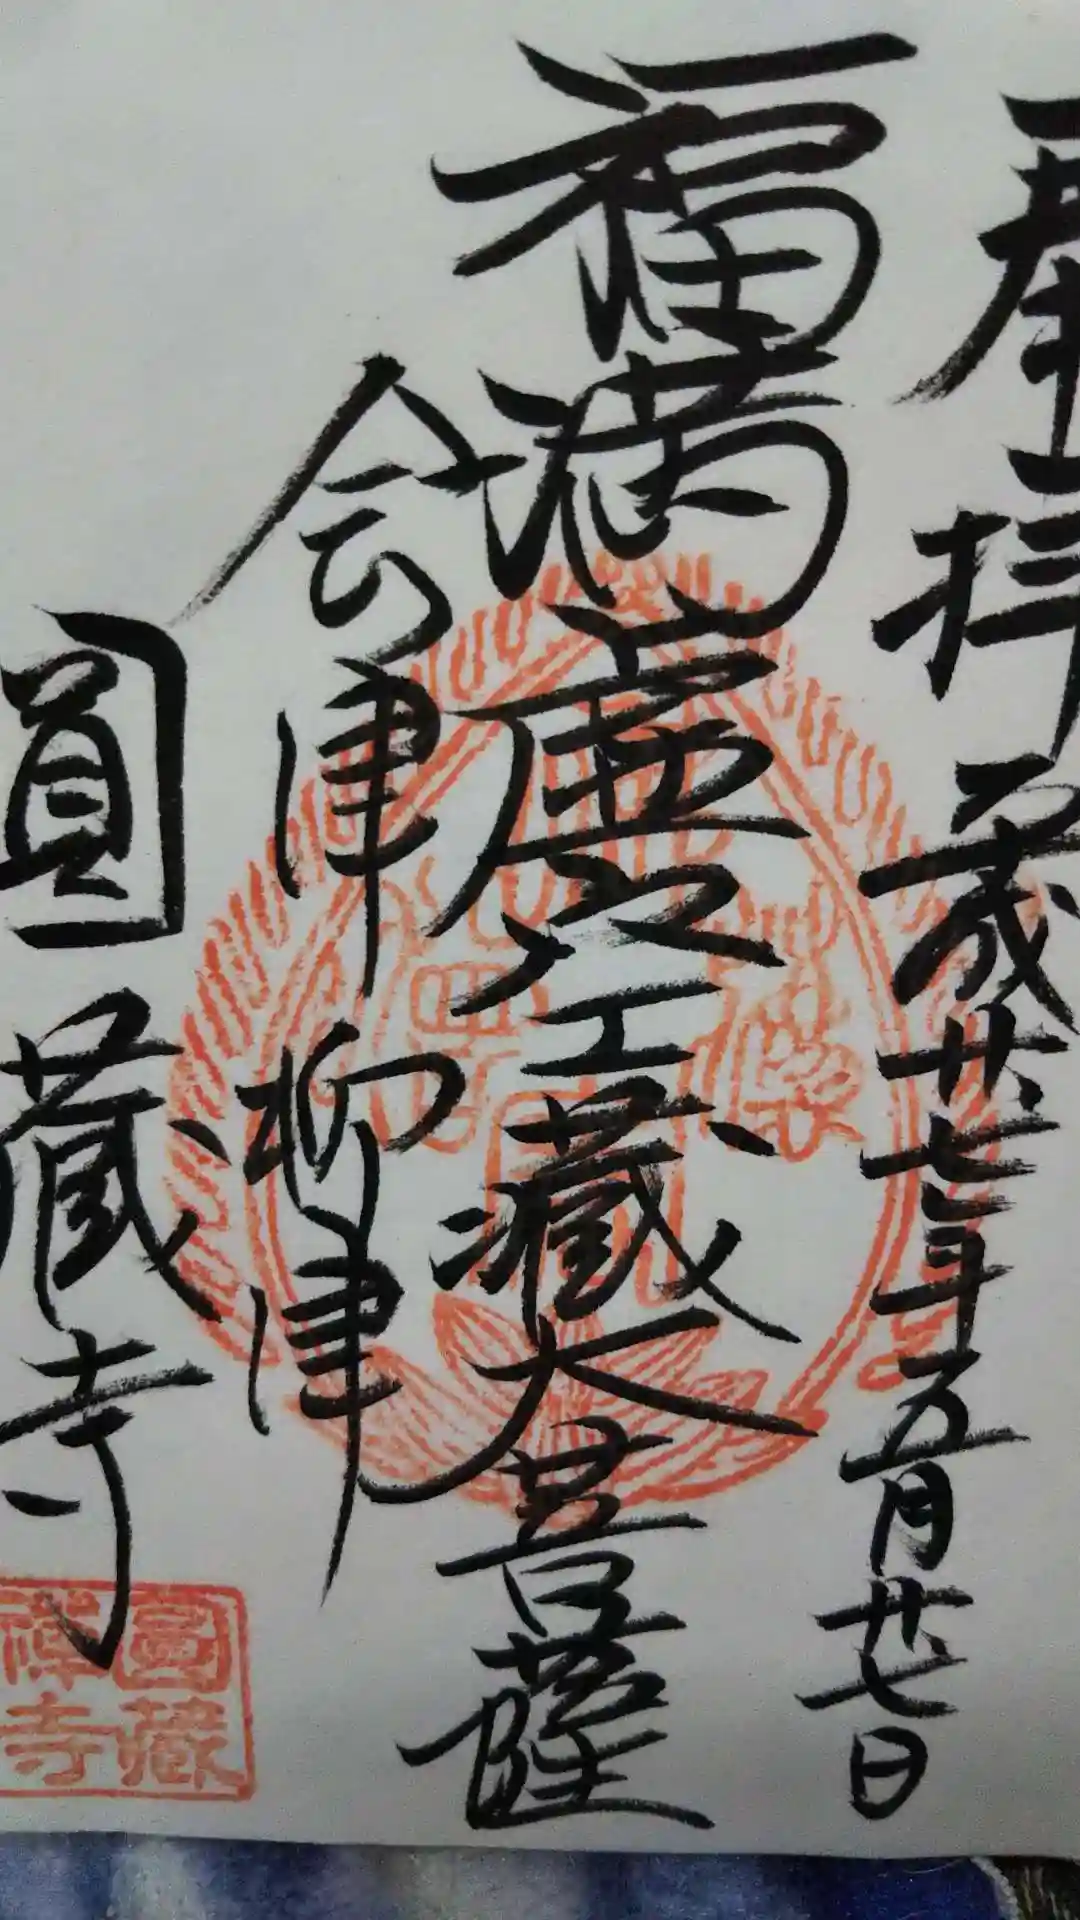 奉拝 平成廿七年五月廿七日
福満虚空藏大菩薩
会津柳津
圓藏寺
圓藏
禅寺